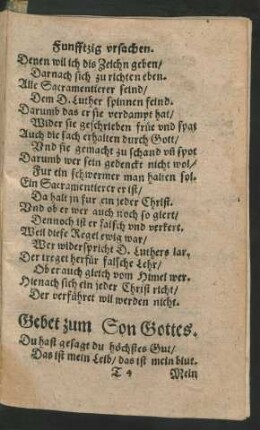 Funfftzig vrsachen.
Denen wil ich dis Zeichn geben/
Darnach sich zu richten eben.
Alle Sacramentierer seind/
Dem D. Luther spinnen feind.
Darumb das er sie verdampt hat/
Wider sie geschrieben früe vnd spat
Auch die sach erhalten durch Gott/
Vnd sie gemacht zu schand vñ spot
Darumb wer sein gedenckt nicht wol/
Fur ein schwermer man halten sol.
Ein Sacramentierer er ist/
Da halt jn fur ein jeder Christ.
Vnd ob er wer auch noch so glert/
Dennoch ist er falsch vnd verkert.
Weil diese Regel ewig war/
Wer widerspricht D. Luthers lar.
Der treget herfür falsche Lehr/
Ob er auch gleich vom Himel wer.
Hienach sich ein jeder Christ richt/
Der verführet wil werden nicht.
Gebet zum Son Gottes.
Du hast gesagt du höchstes Gut/
Das ist mein Leib/ das ist mein blut.
T 4 Mein